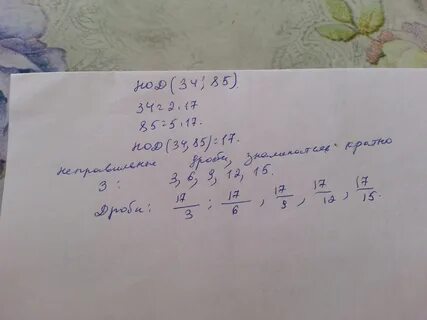 НОД(34; 85)
34=2.17
85=5.17.
НОД(34,85)=17.
неправильные дроби, знаменатель кратно
3: 3, 6, 9, 12, 15.
Дроби: 17/3; 17/6, 17/9, 17/12, 17/15.